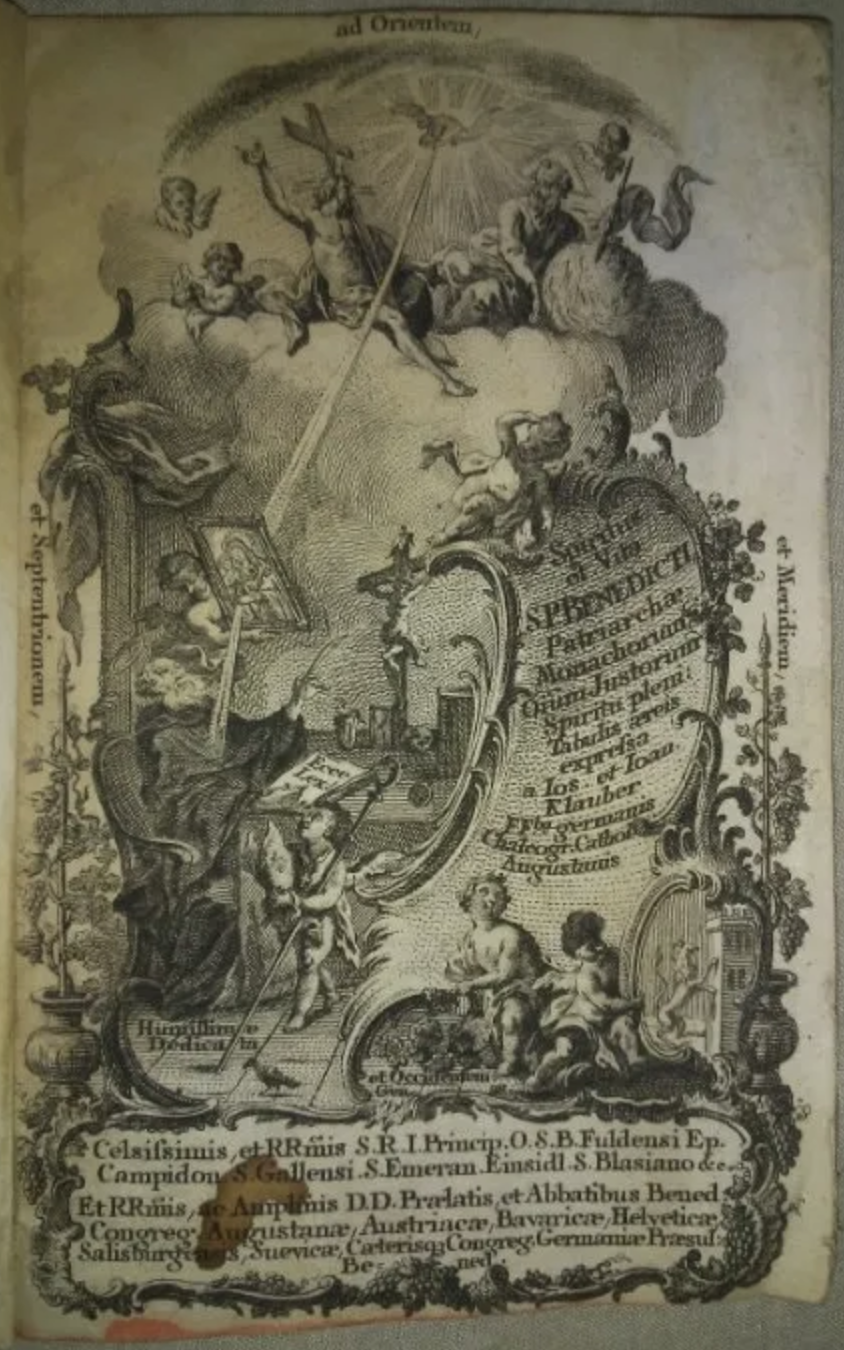 ad Orientem,
et Septentrionem,
et Meridiem,
Spiritus
et Vita
S.P.BENEDICTI
Patriarchæ
Monachorum
Oniũm Justorum
Spiritu pleni
Tabulis æreis
expreſsa
a Ios. et Ioan.
Klauber
germanis
Chalcogr. Cathol.
Augustanis
Ecce
Lex
Humillime
Dedicata
et Occidentem
Celsiſsimis, et RR̃mis S.R.I.Princip.O.S.B.Fuldensi Ep.
Campidon. S.Gallensi.S.Emeran.Einsidl.S.Blasiano &c.
Et RR̃mis, ac Ampliſmis D.D.Prælatis, et Abbatibus Bened
Congreg. Augustanæ, Austriacæ, Bavaricæ, Helveticæ
Salisburgensis, Suevicæ, Cæterisq; Congreg. Germaniæ Præsul:
Be- ned: